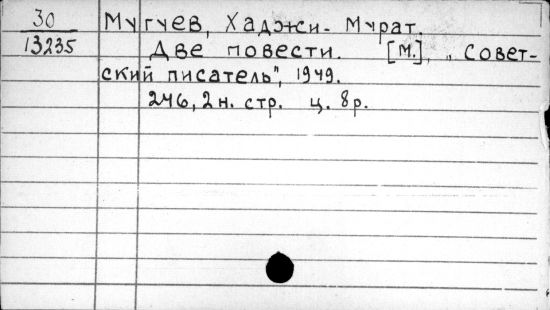 30
13235
Мугуев, Хаджи-Мурат.
Две повести. [М.], „Совет-
ский писатель", 1949.
246, 2 н. стр. ц. 8 р.